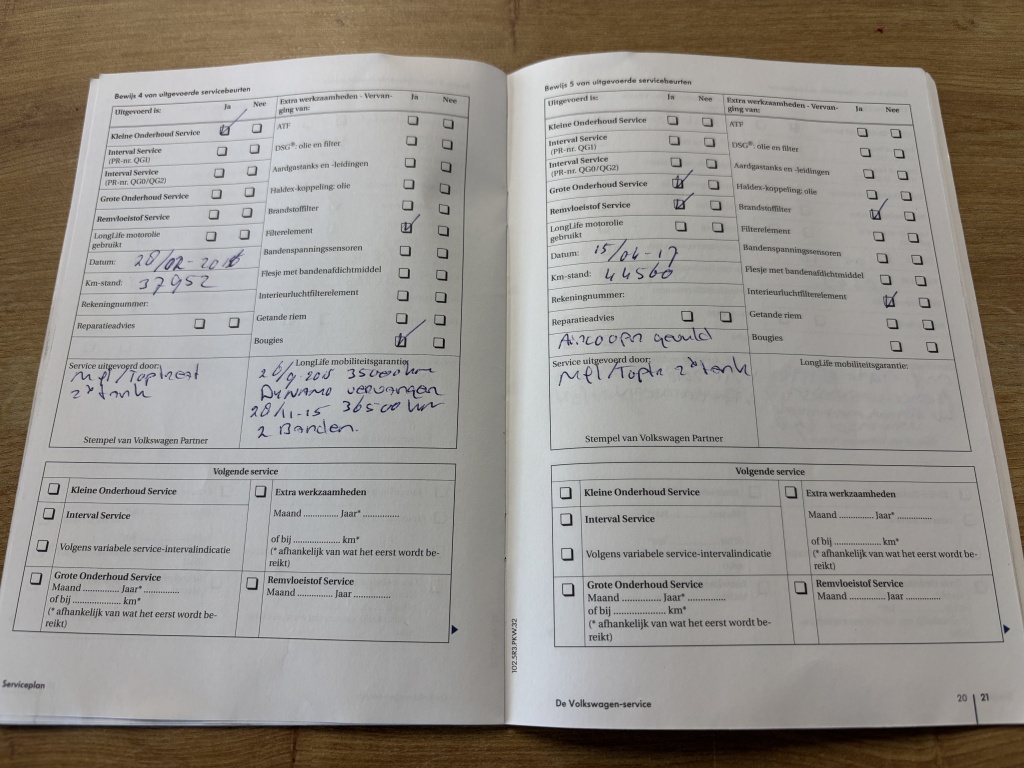 Bewijs 4 van uitgevoerde servicebeurten
Uitgevoerd is: Ja Nee
Kleine Onderhoud Service
Interval Service
(PR-nr. QG1)
Interval Service
(PR-nr. QG0/QG2)
Grote Onderhoud Service
Remvloeistof Service
LongLife motorolie
gebruikt
Datum: 28/02-2016
Km-stand: 37952
Rekeningnummer:
Reparatieadvies
Extra werkzaamheden - Vervan-
ging van: Ja Nee
ATF
DSG®: olie en filter
Aardgastanks en -leidingen
Haldex-koppeling: olie
Brandstoffilter
Filterelement
Bandenspanningssensoren
Flesje met bandenafdichtmiddel
Interieurluchtfilterelement
Getande riem
Bougies
Service uitgevoerd door:
2x tank
Stempel van Volkswagen Partner
LongLife mobiliteitsgarantie
26/9-2015 35000 km
DYNAMO vervangen
28/11-15 36500 km
2 Banden.
Volgende service
Kleine Onderhoud Service
Interval Service
Volgens variabele service-intervalindicatie
Extra werkzaamheden
Maand ............. Jaar* ..............
of bij .................... km*
(* afhankelijk van wat het eerst wordt be-
reikt)
Grote Onderhoud Service
Maand ............. Jaar* ..............
of bij .................... km*
(* afhankelijk van wat het eerst wordt be-
reikt)
Remvloeistof Service
Maand ............. Jaar ..............
Serviceplan
Bewijs 5 van uitgevoerde servicebeurten
Uitgevoerd is: Ja Nee
Kleine Onderhoud Service
Interval Service
(PR-nr. QG1)
Interval Service
(PR-nr. QG0/QG2)
Grote Onderhoud Service
Remvloeistof Service
LongLife motorolie
gebruikt
Datum: 15/04-17
Km-stand: 44500
Rekeningnummer:
Reparatieadvies
Airco opn gevuld
Extra werkzaamheden - Vervan-
ging van: Ja Nee
ATF
DSG®: olie en filter
Aardgastanks en -leidingen
Haldex-koppeling: olie
Brandstoffilter
Filterelement
Bandenspanningssensoren
Flesje met bandenafdichtmiddel
Interieurluchtfilterelement
Getande riem
Bougies
Service uitgevoerd door:
2x tank
Stempel van Volkswagen Partner
LongLife mobiliteitsgarantie:
Volgende service
Kleine Onderhoud Service
Interval Service
Volgens variabele service-intervalindicatie
Extra werkzaamheden
Maand ............. Jaar* ..............
of bij .................... km*
(* afhankelijk van wat het eerst wordt be-
reikt)
Grote Onderhoud Service
Maand ............. Jaar* ..............
of bij .................... km*
(* afhankelijk van wat het eerst wordt be-
reikt)
Remvloeistof Service
Maand ............. Jaar ..............
102.5R3.PKW.32
De Volkswagen-service
20 21